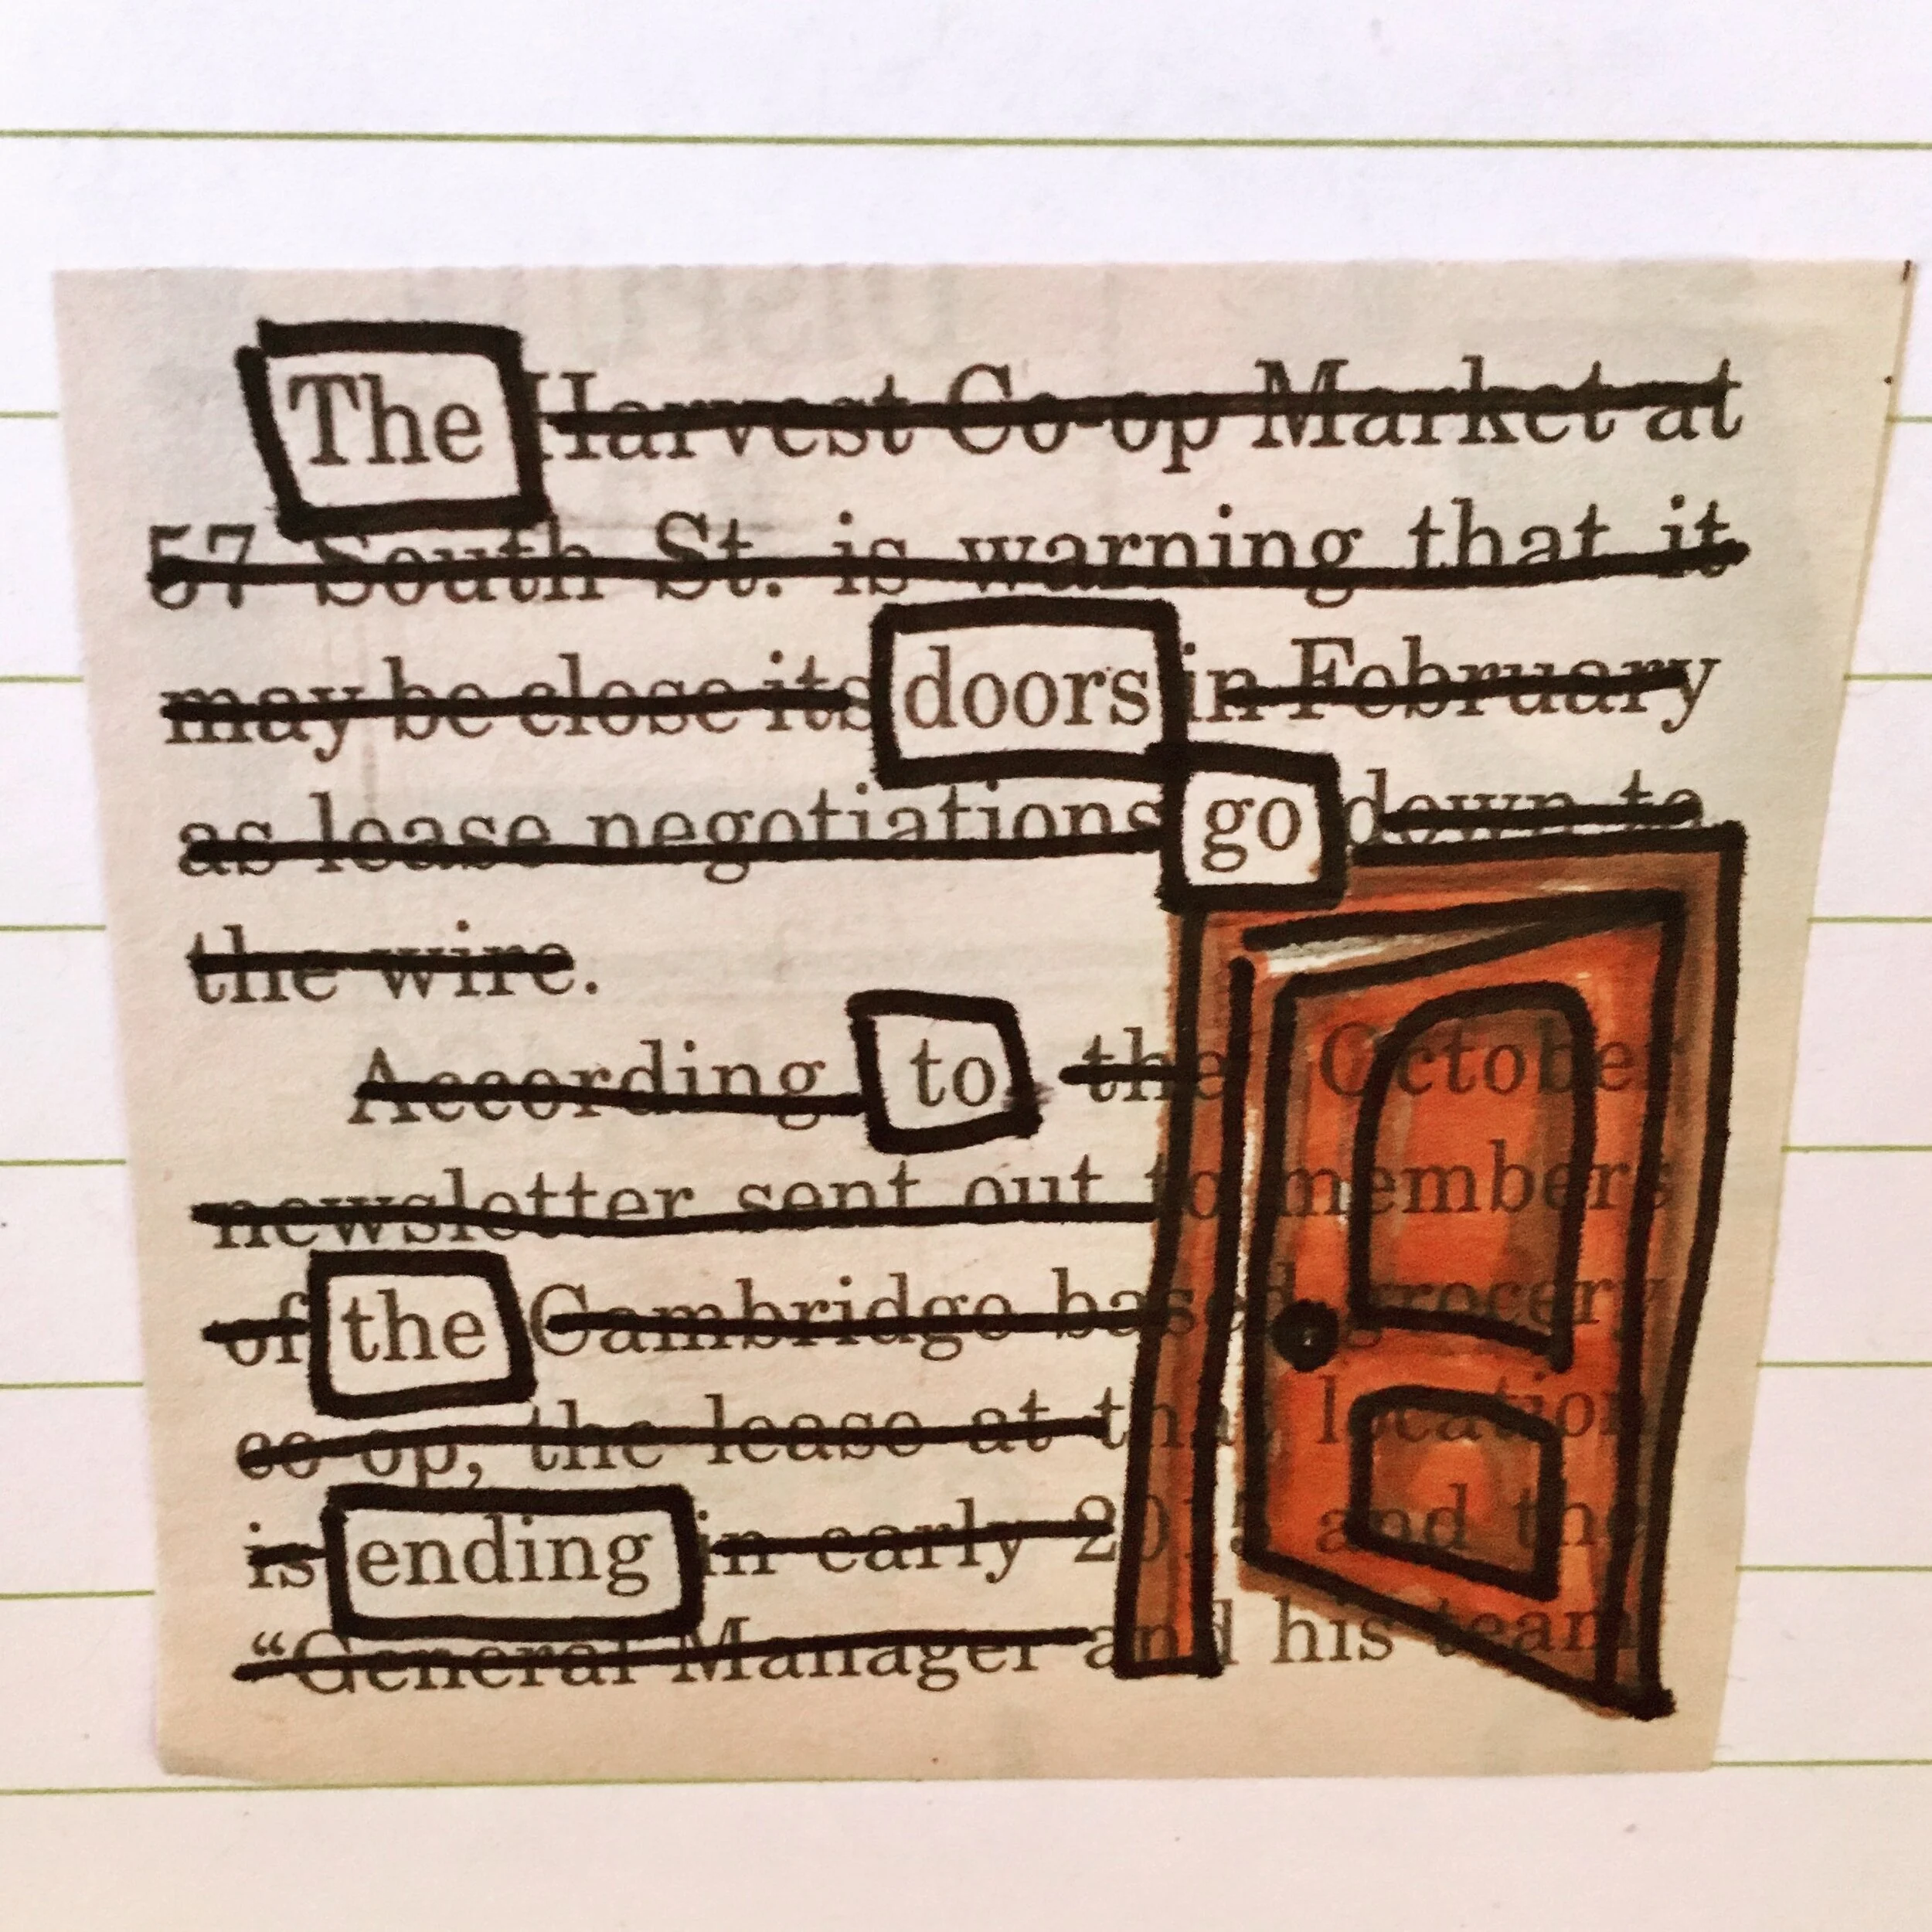 The Harvest Co-op Market at
57 South St. is warning that it
may be close its doors in February
as lease negotiations go down to
the wire.
According to the October
newsletter sent out to members
of the Cambridge based grocery
co-op, the lease at that location
is ending in early 2015 and the
“General Manager and his team